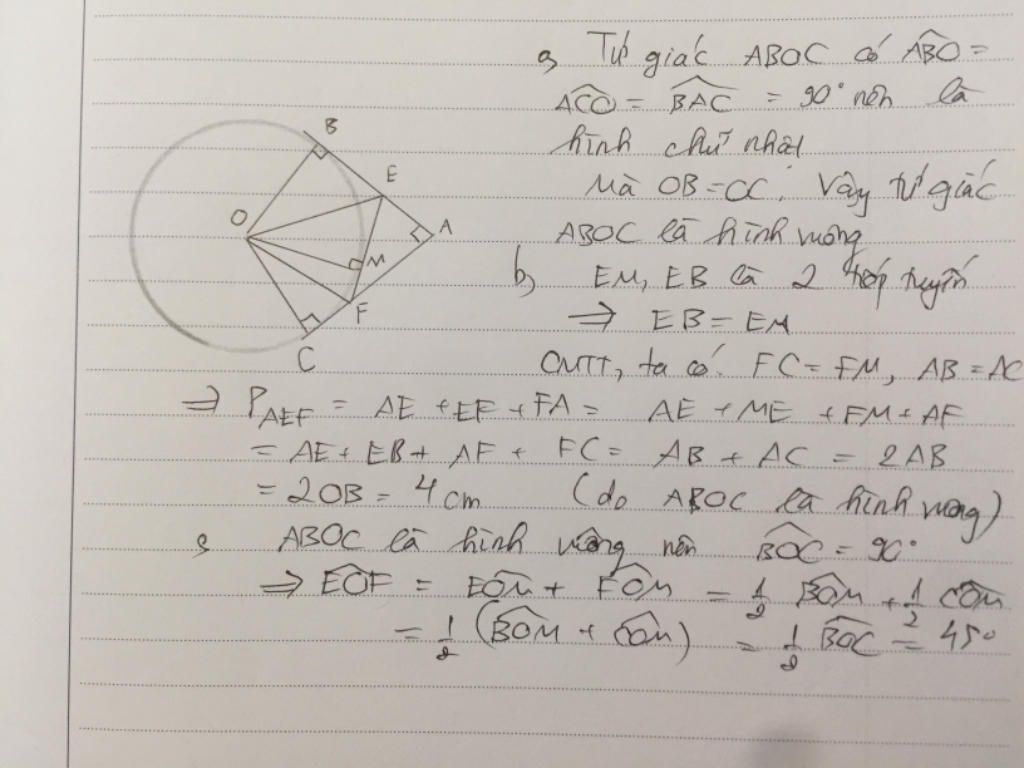 a, Tứ giác ABOC có \widehat{ABO} =
\widehat{ACO} = \widehat{BAC} = 90° nên là
hình chữ nhật
Mà OB = OC. Vậy tứ giác
ABOC là hình vuông
b, EM, EB là 2 tiếp tuyến
⇒ EB = EM
CMTT, ta có: FC = FM, AB = AC
⇒ P_{AEF} = AE + EF + FA = AE + ME + FM + AF
= AE + EB + AF + FC = AB + AC = 2AB
= 2OB = 4cm (do ABOC là hình vuông)
c, ABOC là hình vuông nên \widehat{BOC} = 90°
⇒ \widehat{EOF} = \widehat{EOM} + \widehat{FOM} = \frac{1}{2} \widehat{BOM} + \frac{1}{2} \widehat{COM}
= \frac{1}{2} (\widehat{BOM} + \widehat{COM}) = \frac{1}{2} \widehat{BOC} = 45°
B
E
O
A
M
F
C